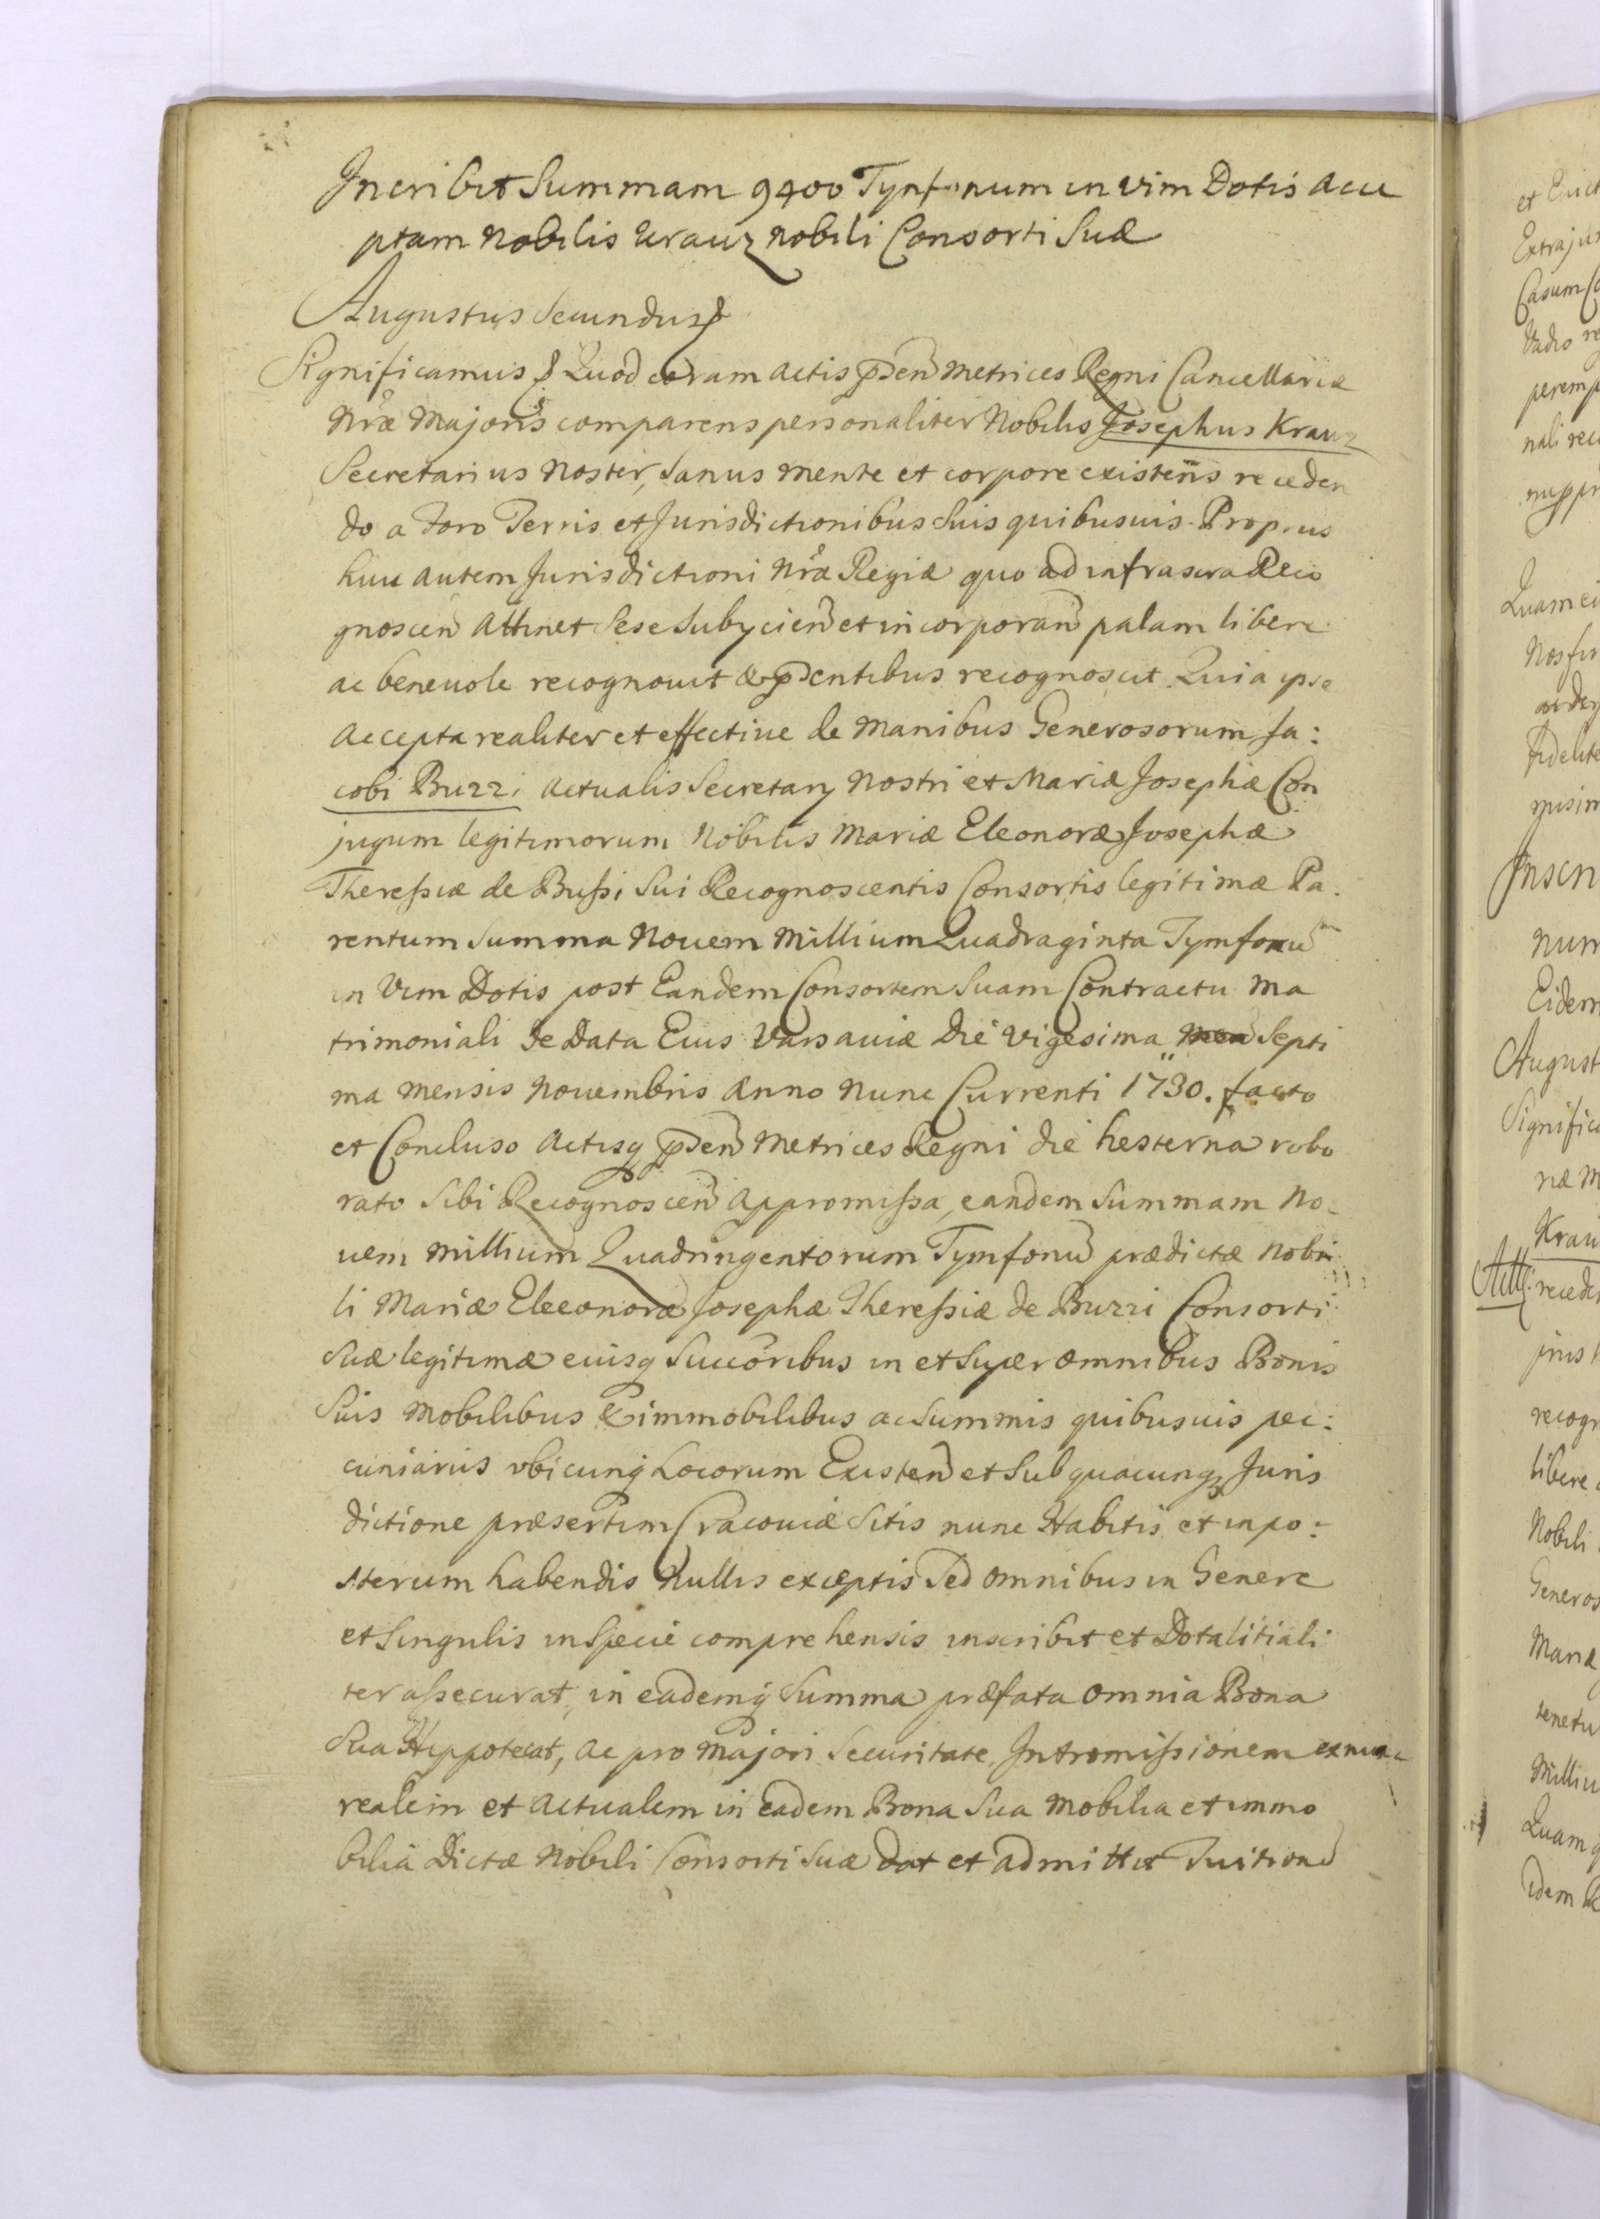 Incribit Summam 9400 Tynfonum in vim Dotis acce
ptam Nobilis Krauz nobili Consorti Suæ
Augustus Secundus
Significamus Quod coram Actis p̄sen̄ Metrices Regni Cancellariæ
Nr̄æ Majoris comparens personaliter Nobilis Josephus Krauz
Secretarius Noster, Sanus mente et corpore existens receden
do a Foro Terris et Jurisdictionibus Suis quibusuis Proprys
huic autem Jurisdictioni Nr̄æ Regiæ quo ad infrascra Reco
gnoscen̄ Attinet Sese Subycien̄ et incorporan̄ palam libere
ac beneuole recognouit & p̄sentibus recognoscit Quia ipse
Accepta realiter et effectiue de Manibus Generosorum Ja:
cobi Buzzi Actualis Secretary Nostri et Mariæ Josephæ Con
jugum legitimorum Nobilis Mariæ Eleonoræ Josephæ
Theressiæ de Bussi Sui Recognoscentis Consortis legitimæ Pa.
rentum Summa Nouem Millium Quadraginta Tymfonu᷃m
in Vim Dotis post Eandem Consortem Suam Contractu Ma
trimoniali de Data Eius Varsauiæ Die Vigesima Septi
ma mensis Nouembris Anno Nunc Currenti 1730. facto
et Concluso Actisq p̄sen̄ Metrices Regni die hesterna robo
rato Sibi Recognoscen̄ appromissa, eandem Summam No-
uem Millium Quadringentorum Tymfonu᷃ prædictæ Nobi
li Mariæ Eleeonoræ Josephæ Theressiæ de Buzzi Consorti
Suæ legitimæ eiusq Succōribus in et Super omnibus Bonis
Suis Mobilibus & immobilibus ac Summis quibusuis pec:
cuniarus vbicunq Locorum Existen̄ et Sub quacunq Juris
dictione præsertim Cracouiæ Sitis nunc Habitis et inpo:
sterum habendis Nullis exceptis Sed omnibus in Genere
et Singulis in Specie comprehensis inscribit et Dotalitiali
ter assecurat, in eademq Summa præfata Omnia Bona
Sua Hyppotecat, ac pro Majori Securitate Intromissionem ex nunc
realem et Actualem in eadem Bona Sua Mobilia et immo
bilia Dictæ Nobili Consorti Suæ dat et admittit Tuition̄
et Euict
Extraju
Casum
Vadio re
peremp
nali rec
Quam ei
Nos fir
fidelite
Inscri
num
Eidem
August
Signific
Krau
recede
recogn
libere
Nobili
Generos
Mariæ
tenetu
Milliu
Quam q